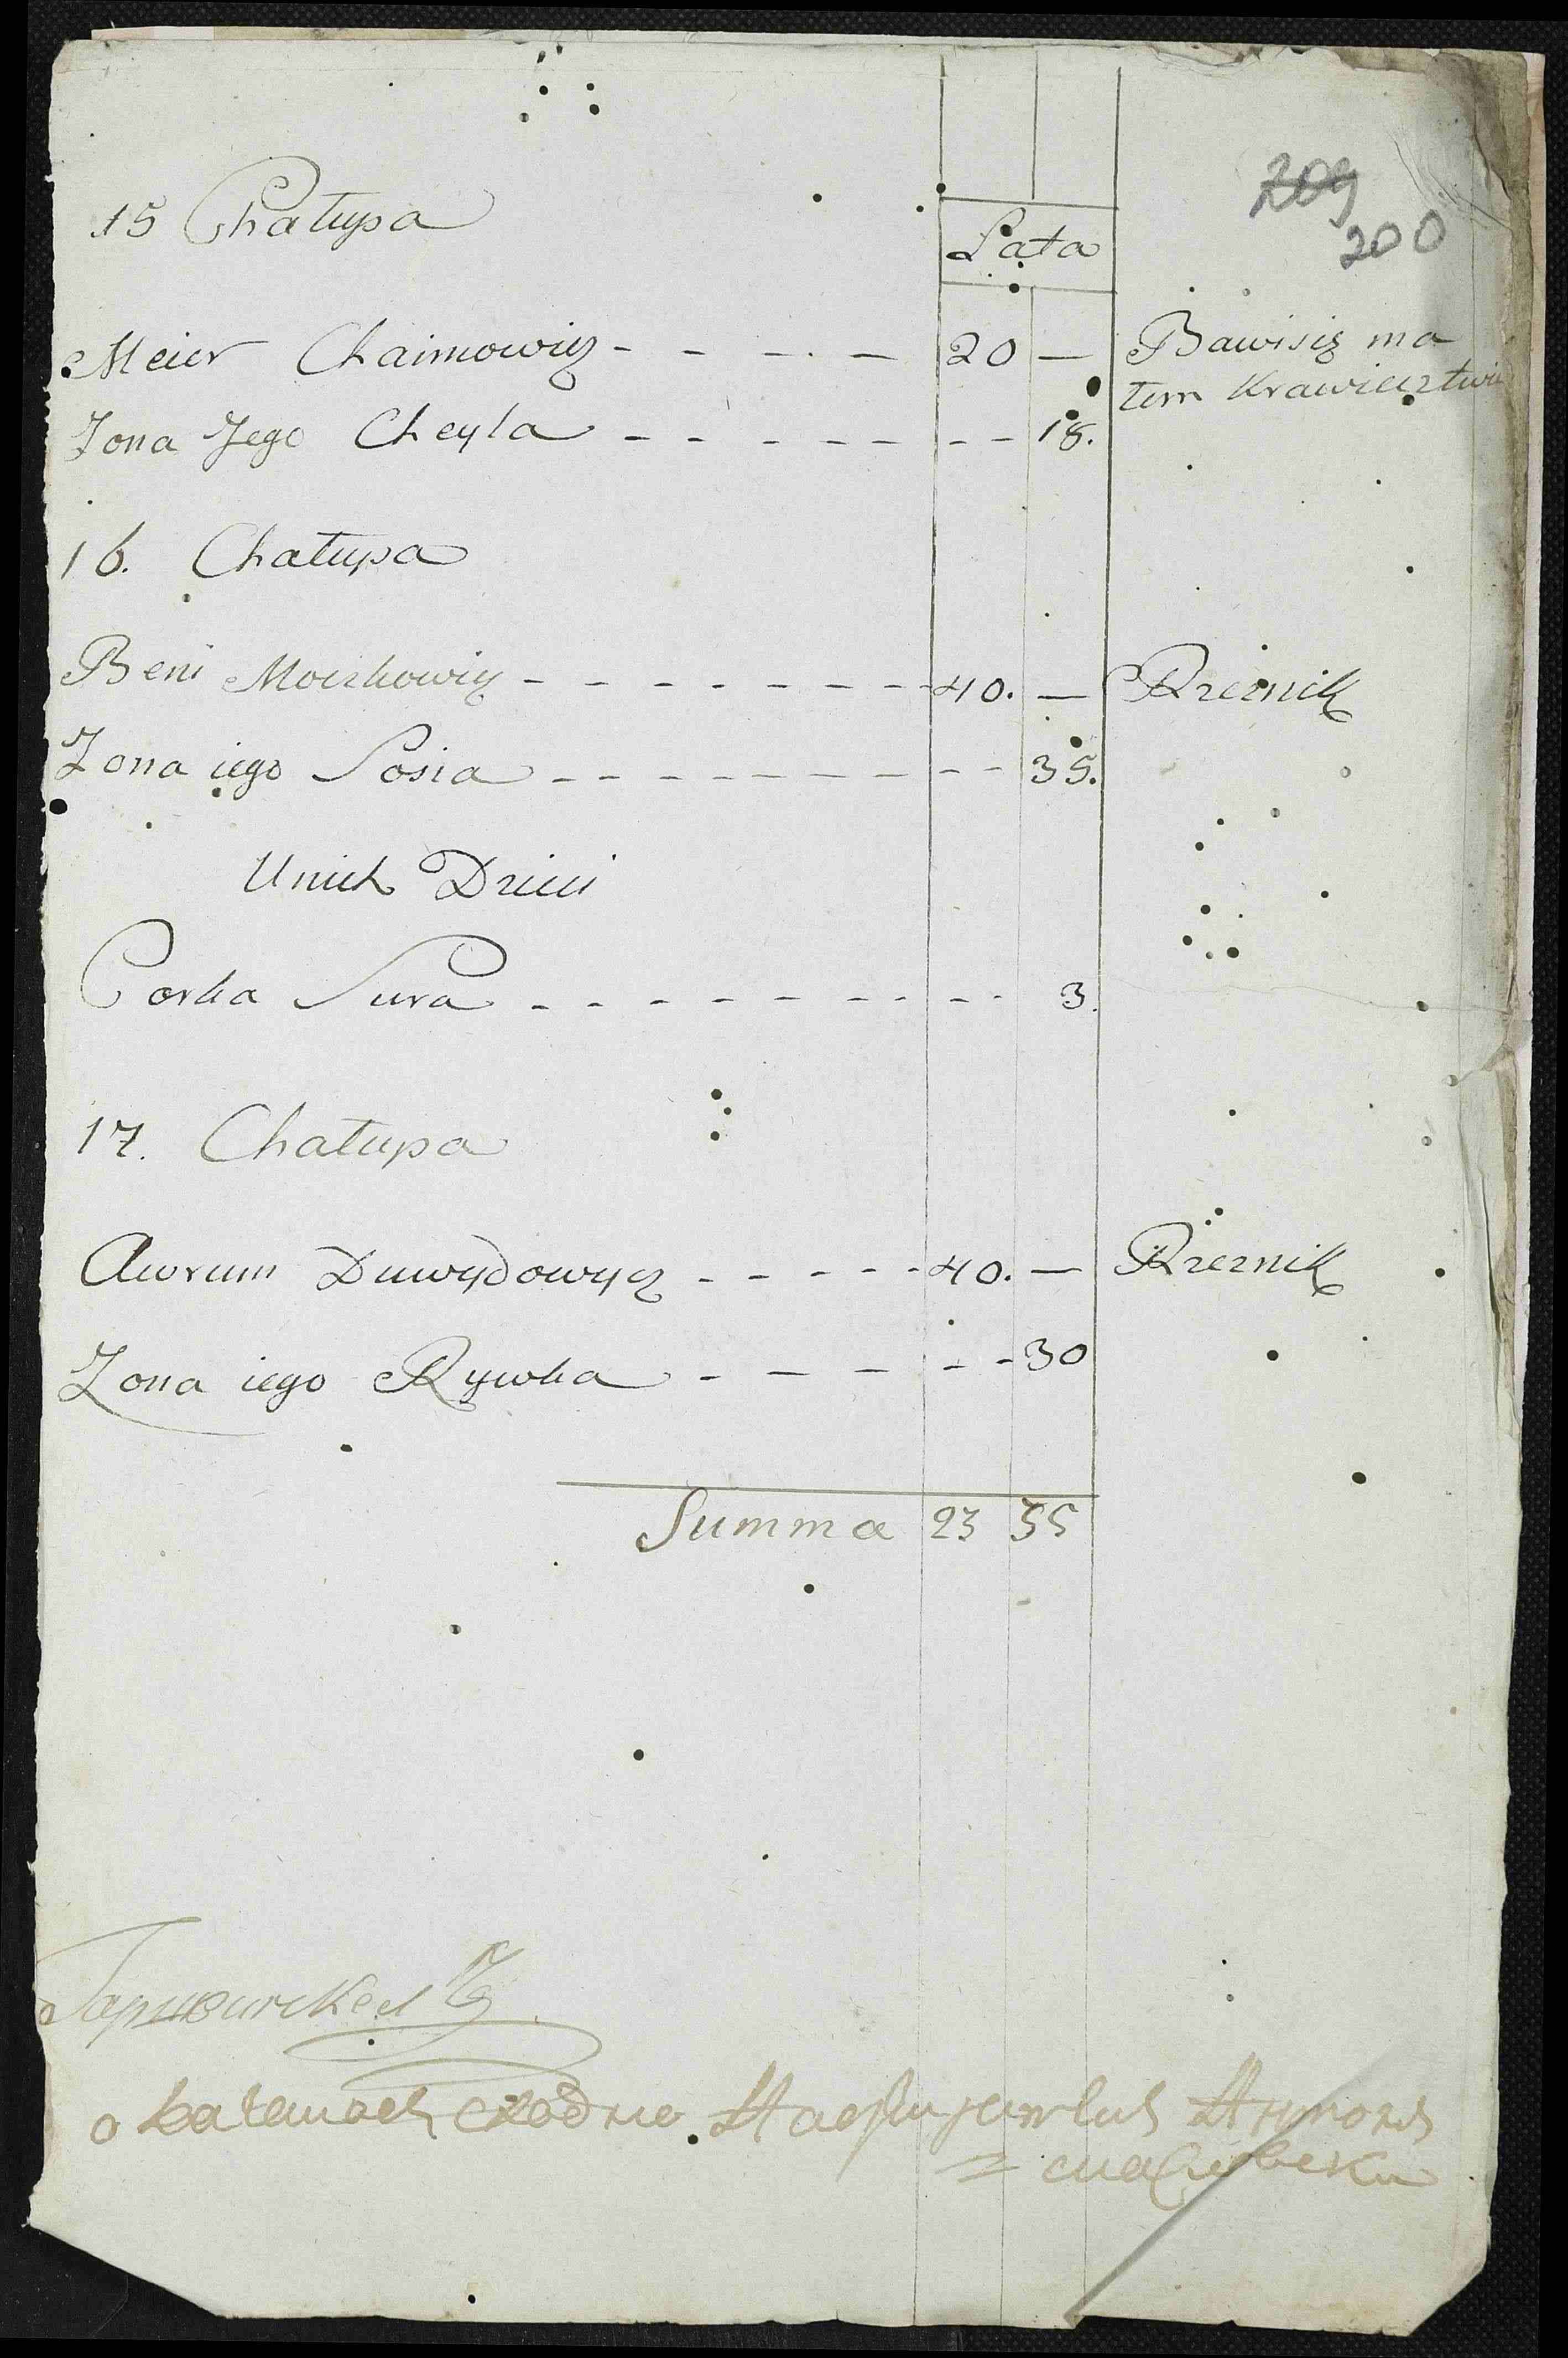 209
200
15 Chałupa
Lata
Meier Chaimowicz - - - - - 20 — Bawi się ma
łem Krawiecztwē
Zona Jego Cheyla - - - - - - - 18.
16. Chałupa
Beni Moszkowicz - - - - - - - - 40. — Rzeznik
Zona iego Sosia - - - - - - - - - 35.
Unich Dzieci
Corka Sura - - - - - - - - - 3.
17. Chałupa
Awrum Duwydowycz - - - - - 40. — Rzeznik
Zona iego Rywka - - - - - - 30
Summa 23 35